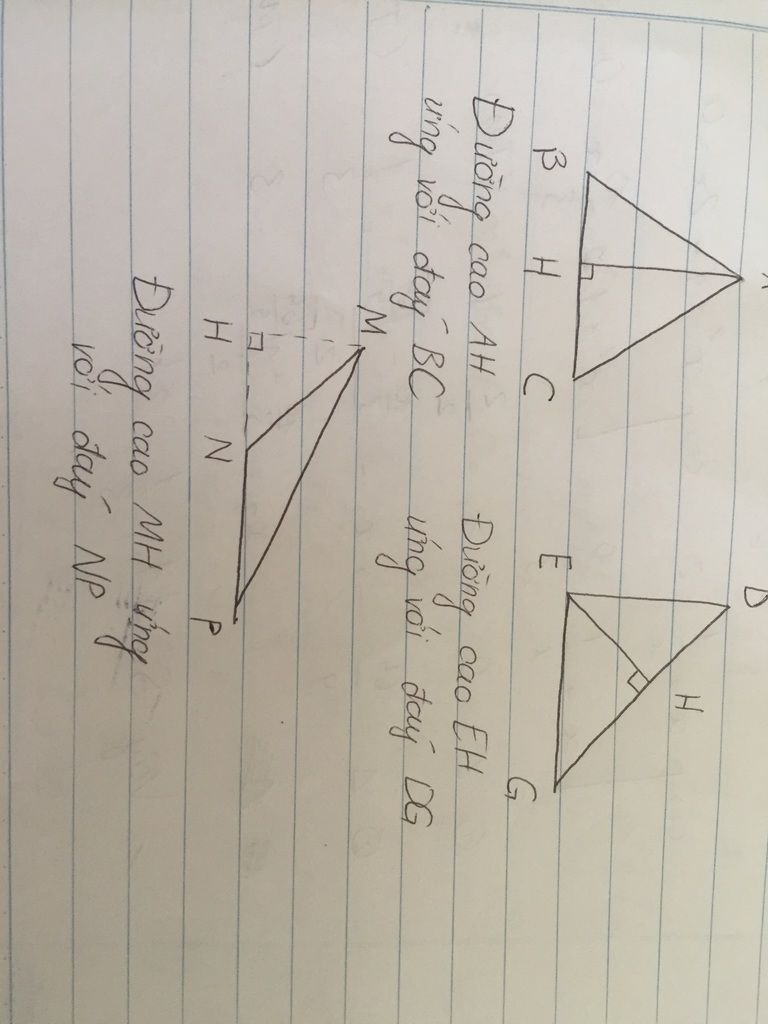 A
B
H
C
Đường cao AH
ứng với đáy BC
D
E
H
G
Đường cao EH
ứng với đáy DG
M
H
N
P
Đường cao MH ứng
với đáy NP